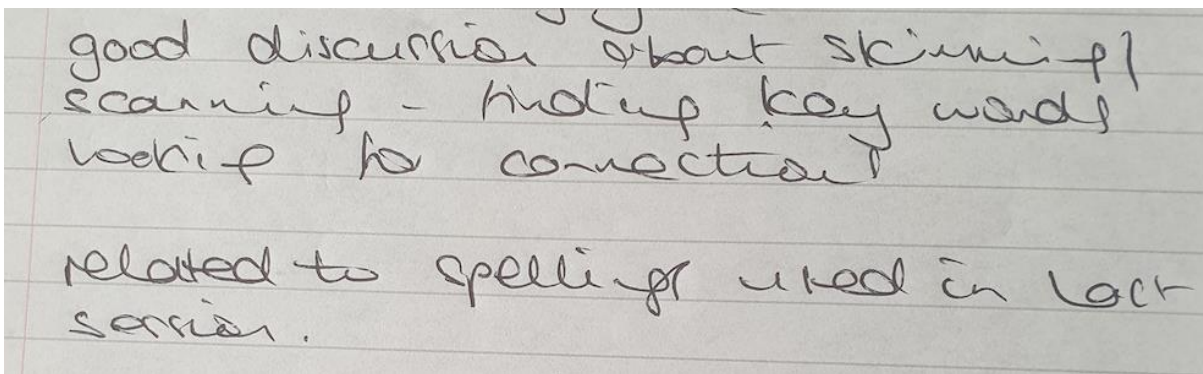 good discussion about skimming/
scanning - finding key words
looking for connections
related to spellings used in last
session.